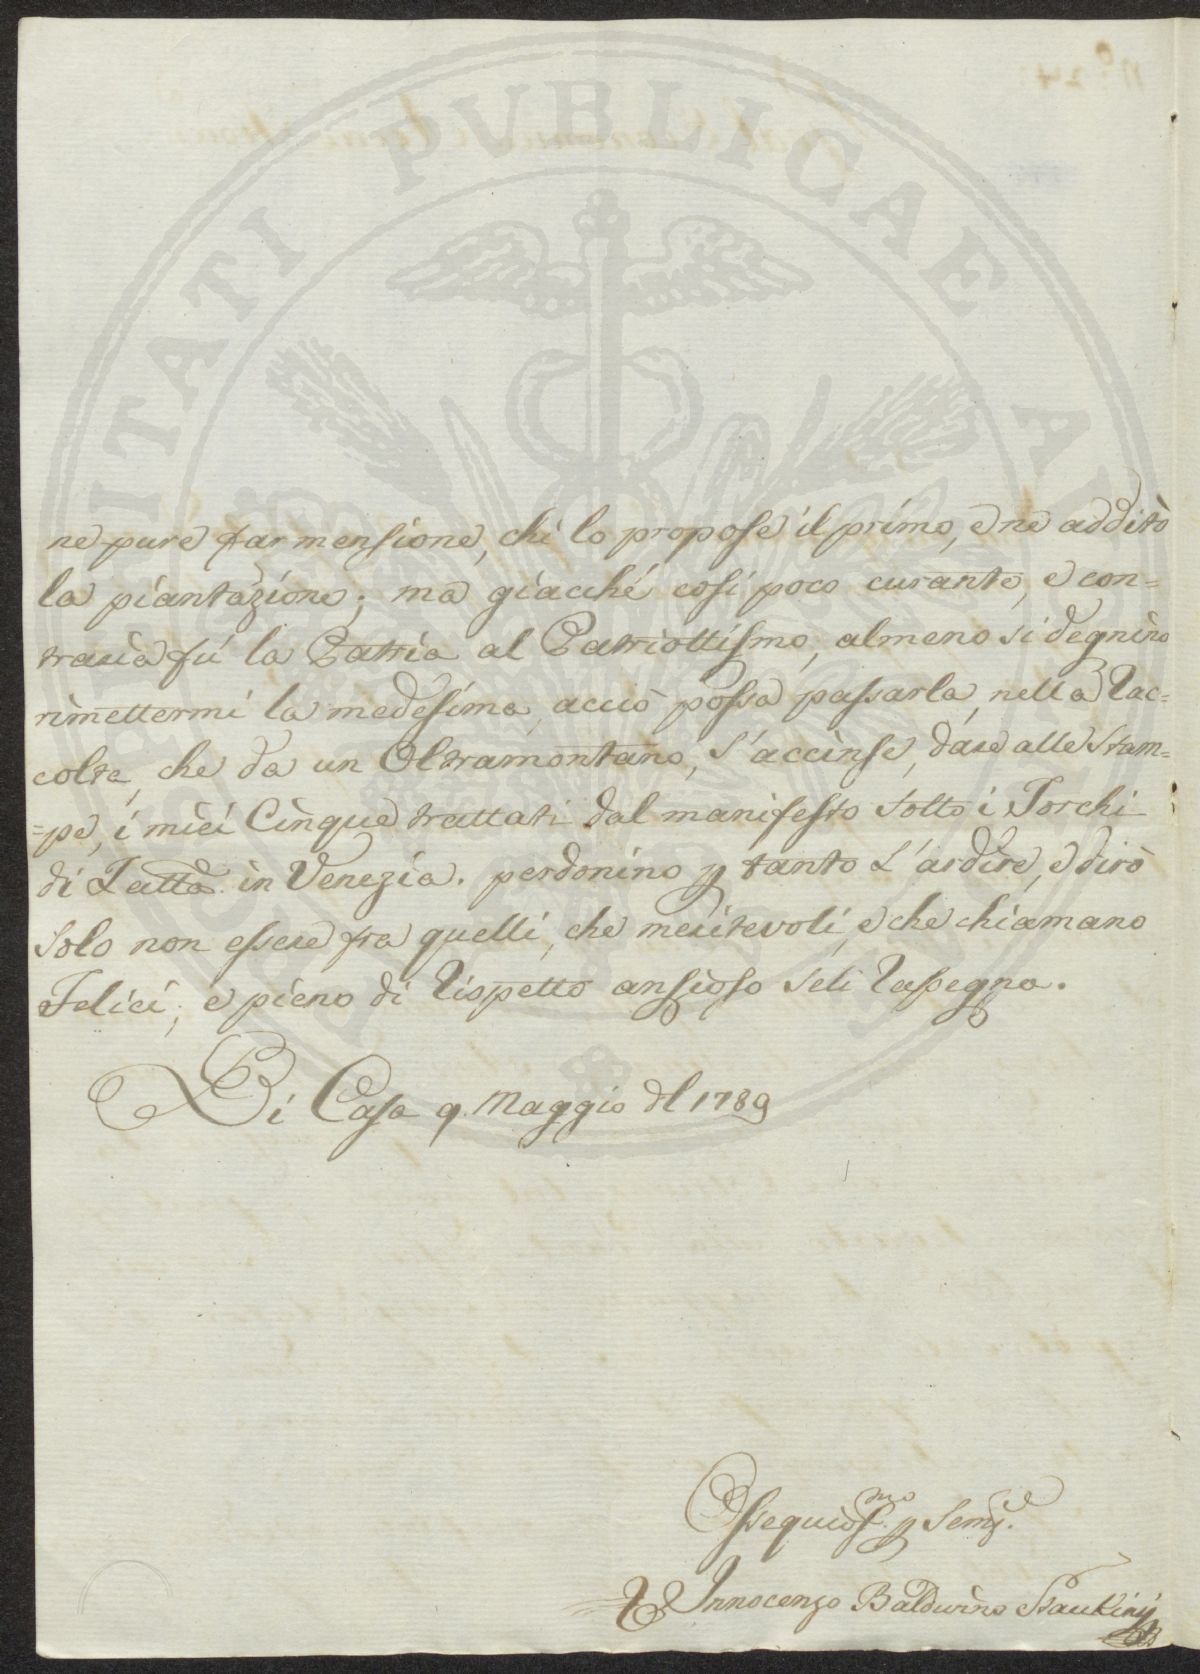 PUBLICAE
ne pure far mensione, chi lo propose il primo, e ne additò
la piantazione; ma giacché cosi poco curante, e con=
traria fú la Patria al Patriottismo, almeno si degnino
rimettermi la medesima, acciò possa passarla, nella Rac=
colta, che da un Oltramontano, s'accinse, dare alle Stam=
=pe, i miei Cinque trattati dal manifesto sotto i Torchi
di in Venezia. perdonino p tanto l'ardire, e dirò
solo non essere fra quelli, che meritevoli, e che chiamano
Felici; e pieno di Rispetto ansioso seli Rassegna.
Di Casa 9. Maggio del 1789
Ossequiosmo p Semp.
Innocenzo Baldwino